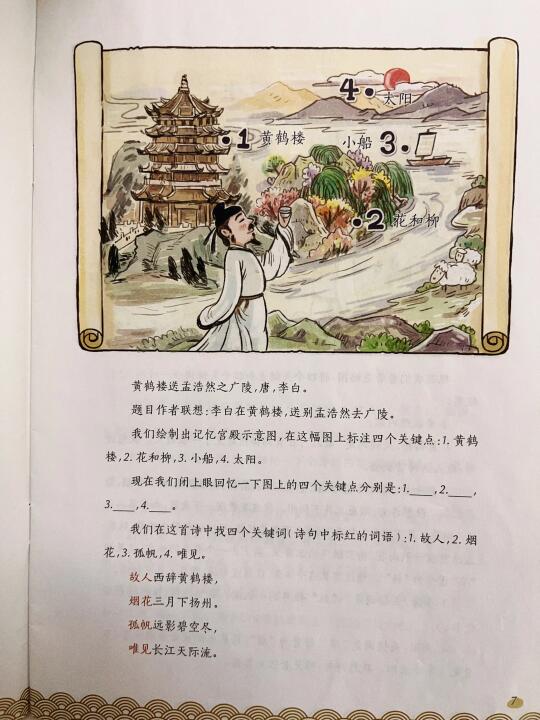 4 太阳
1 黄鹤楼 小船 3
2 花和柳
黄鹤楼送孟浩然之广陵,唐,李白。
题目作者联想:李白在黄鹤楼,送别孟浩然去广陵。
我们绘制出记忆宫殿示意图,在这幅图上标注四个关键点:1. 黄鹤
楼,2. 花和柳,3. 小船,4. 太阳。
现在我们闭上眼回忆一下图上的四个关键点分别是:1.___,2.___,
3.___,4.___。
我们在这首诗中找四个关键词(诗句中标红的词语):1. 故人,2. 烟
花,3. 孤帆,4. 唯见。
故人西辞黄鹤楼,
烟花三月下扬州。
孤帆远影碧空尽,
唯见长江天际流。
7